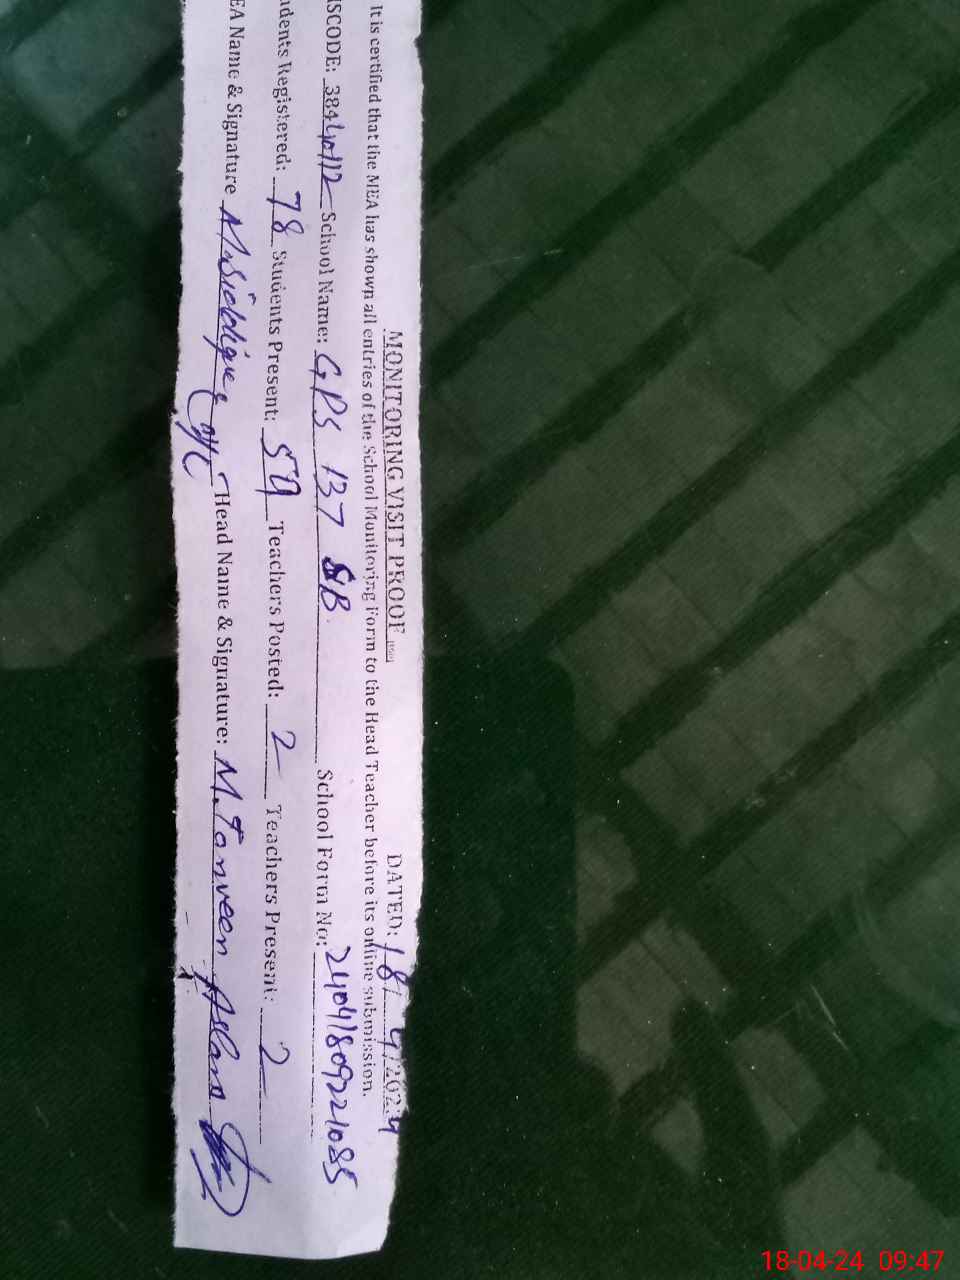 MONITORING VISIT PROOF DATED: 18/4/2024
It is certified that the MEA has shown all entries of the School Monitoring Form to the Head Teacher before its online submission.
ISCODE: 38440112 School Name: GPS 137 SB School Form No: 24041809221085
udents Registered: 78 Students Present: 59 Teachers Posted: 2 Teachers Present: 2
EA Name & Signature M.Siddique Head Name & Signature: M.Tanveer Aslam
18-04-24 09:47